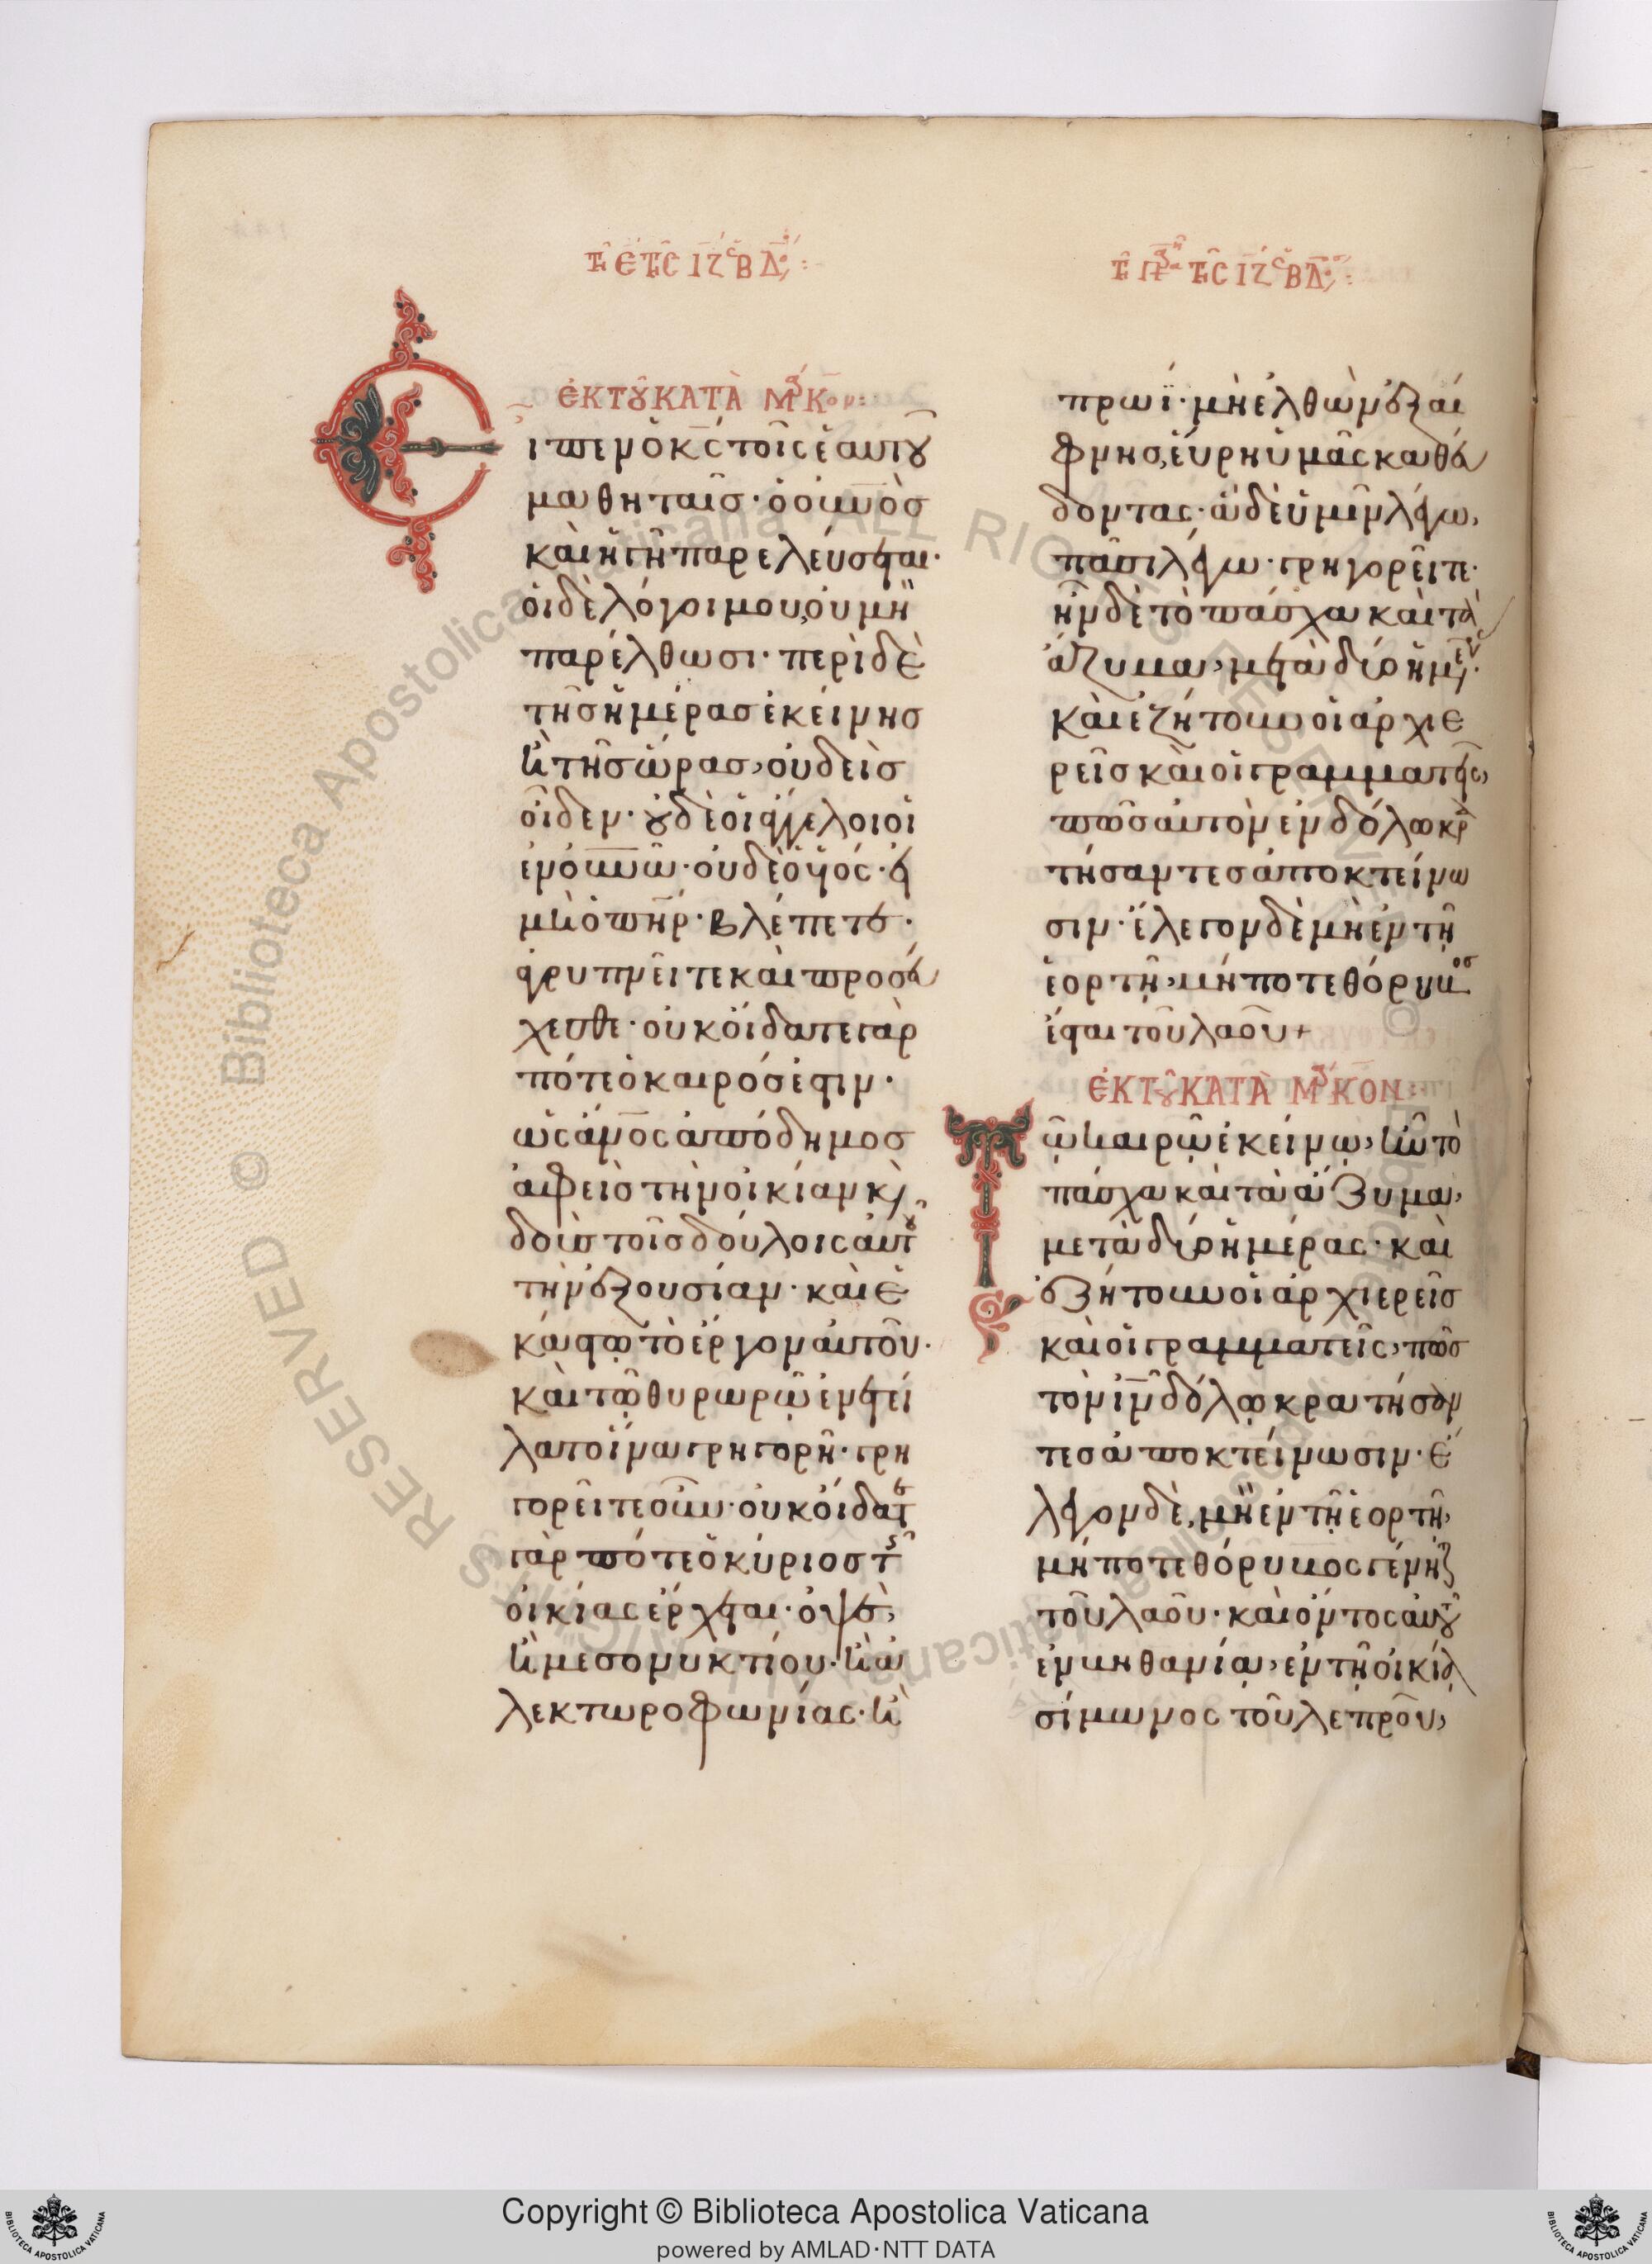 τῇ ε τῆς ιζ ἑβδ
ἐκ τοῦ κατὰ Μάρκον
ἶπεν ὁ κς τοῖς ἑαυτοῦ
μαθηταῖς· ὁ οὐνος
καὶ ἡ γῆ παρελεύσεται·
οἱ δὲ λόγοι μου, οὐ μὴ
παρέλθωσι· περὶ δὲ
τῆς ἡμέρας ἐκείνης
ἢ τῆς ὥρας, οὐδεὶς
οἶδεν· οὐδὲ οἱ ἄγγελοι οἱ
ἐν οὐνῶ· οὐδὲ ὁ υἱός· εἰ
μὴ ὁ πηρ· βλέπετε·
ἀγρυπνεῖτε καὶ προσεύ
χεσθε· οὐκ οἴδατε γὰρ
πότε ὁ καιρός ἐστιν·
ὡς ἀνος ἀπόδημος
ἀφεὶς τὴν οἰκίαν καὶ
δοὺς τοῖς δούλοις αὐτοῦ
τὴν ἐξουσίαν· καὶ ἑ
κάστω τὸ ἔργον αὐτοῦ·
καὶ τῶ θυρωρῶ ἐνετεί
λατο ἵνα γρηγορῆ· γρη
γορεῖτε οὖν· οὐκ οἴδατε
γὰρ πότε ὁ κύριος τῆς
οἰκίας ἔρχεται· ὀψὲ,
ἢ μεσονυκτίου· ἢ ἀ
λεκτωροφωνίας· ἢ
τῇ τῆς ιζ ἑβδ
πρωΐ· μὴ ἐλθὼν ἐξαί
φνης, εὕρη ὑμᾶς καθεύ
δοντας· ἃ δὲ ὑμῖν λέγω,
πᾶσι λέγω· γρηγορεῖτε·
ἦν δὲ τὸ πάσχα καὶ τὰ
ἄζυμα, μετὰ δύο ἡμέρας·
καὶ ἐζήτουν οἱ ἀρχιε
ρεῖς καὶ οἱ γραμματεῖς,
πῶς αὐτὸν ἐν δόλω κρα
τήσαντες ἀποκτείνω
σιν· ἔλεγον δὲ μὴ ἐν τῆ
ἑορτῆ, μήποτε θόρυβος
ἔσται τοῦ λαοῦ +
ἐκ τοῦ κατὰ Μάρκον
Τῶ καιρῶ ἐκείνω, ἦν τὸ
πάσχα καὶ τὰ ἄζυμα,
μετὰ δύο ἡμέρας· καὶ
ἐζήτουν οἱ ἀρχιερεῖς
καὶ οἱ γραμματεῖς, πῶς
τὸν ἰν δόλω κρατήσαν
τες ἀποκτείνωσιν· ἔ
λεγον δὲ, μὴ ἐν τῆ ἑορτῆ,
μήποτε θόρυβος γένηται
τοῦ λαοῦ· καὶ ὄντος αὐτοῦ
ἐν βηθανία, ἐν τῆ οἰκία
σίμωνος τοῦ λεπροῦ,
Copyright © Biblioteca Apostolica Vaticana
powered by AMLAD·NTT DATA